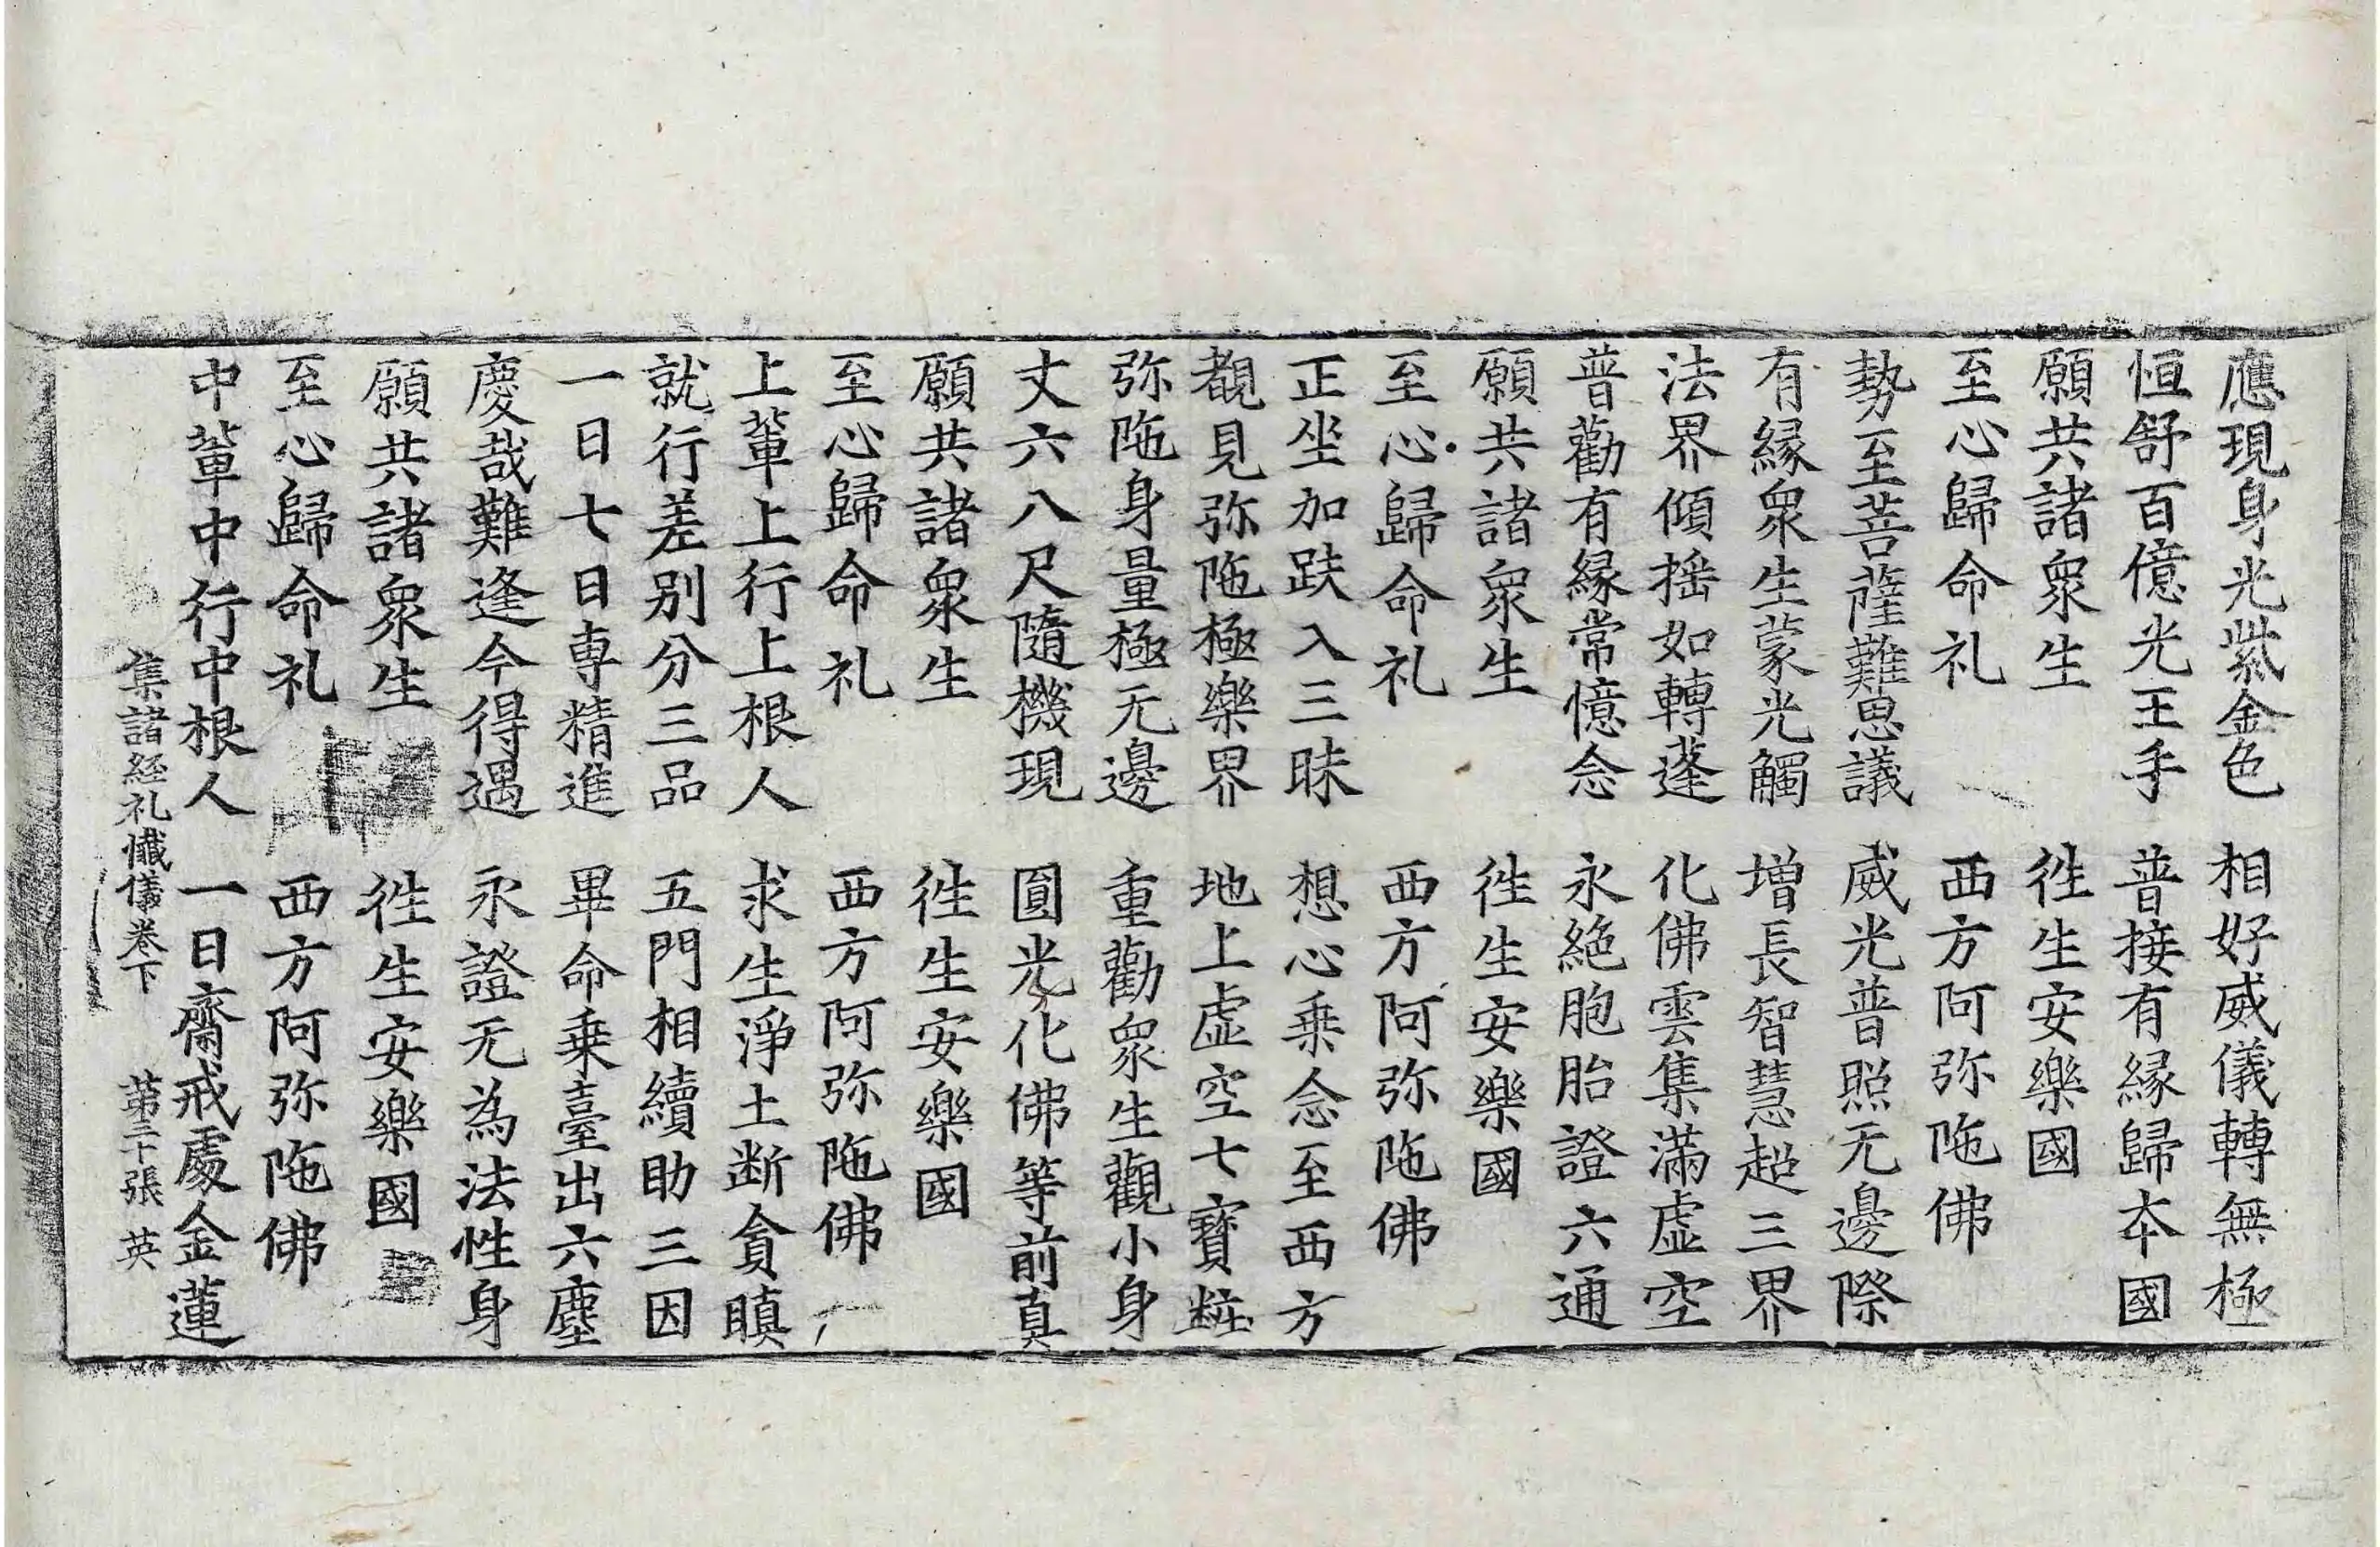 應現身光紫金色　相好威儀轉無極
恒舒百億光王手　普接有縁歸夲國
願共諸衆生　徃生安樂國
至心歸命礼　西方阿弥陁佛
勢至菩薩難思議　威光普照无邊際
有縁衆生蒙光觸　增長智慧超三界
法界傾揺如轉蓬　化佛雲集滿虛空
普勸有縁常憶念　永絶胞胎證六通
願共諸衆生　徃生安樂國
至心歸命礼　西方阿弥陁佛
正坐加趺入三昧　想心乗念至西方
覩見弥陁極樂界　地上虛空七寶粧
弥陁身量極无邊　重勸衆生觀小身
丈六八尺隨機現　圓光化佛等前真
願共諸衆生　徃生安樂國
至心歸命礼　西方阿弥陁佛
上輩上行上根人　求生淨土断貪瞋
就行差别分三品　五門相續助三因
一日七日専精進　畢命乗臺出六塵
慶哉難逢今得遇　永證无為法性身
願共諸衆生　徃生安樂國
至心歸命礼　西方阿弥陁佛
中輩中行中根人　一日齋戒處金蓮
集諸経礼懺儀卷下　第三十張　英